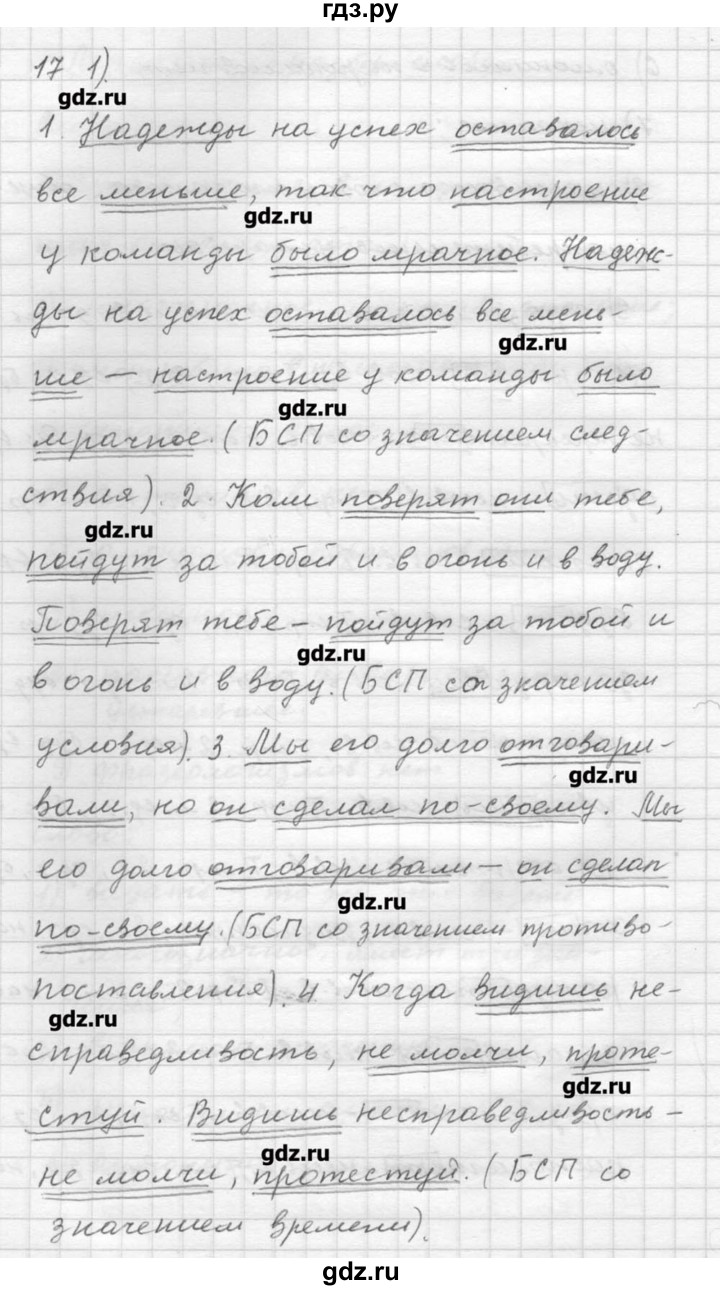 гдз.ру
17 1).
gdz.ru
1. Надежды на успех оставалось
все меньше, так что настроение
gdz.ru
у команды было мрачное. Надеж-
ды на успех оставалось все мень-
gdz.ru
ше — настроение у команды было
gdz.ru
мрачное. (БСП со значением след-
ствия). 2. Коли поверят они тебе,
gdz.ru
пойдут за тобой и в огонь и в воду.
Поверят тебе – пойдут за тобой и
gdz.ru
в огонь и в воду. (БСП со значением
условия). 3. Мы его долго отговари-
gdz.ru
вали, но он сделал по-своему. Мы
его долго отговаривали – он сделал
gdz.ru
по-своему. (БСП со значением противо-
поставления). 4. Когда видишь не-
gdz.ru
справедливость, не молчи, проте-
gdz.ru
стуй. Видишь несправедливость –
gdz.ru
не молчи, протестуй. (БСП со
значением времени).
gdz.ru